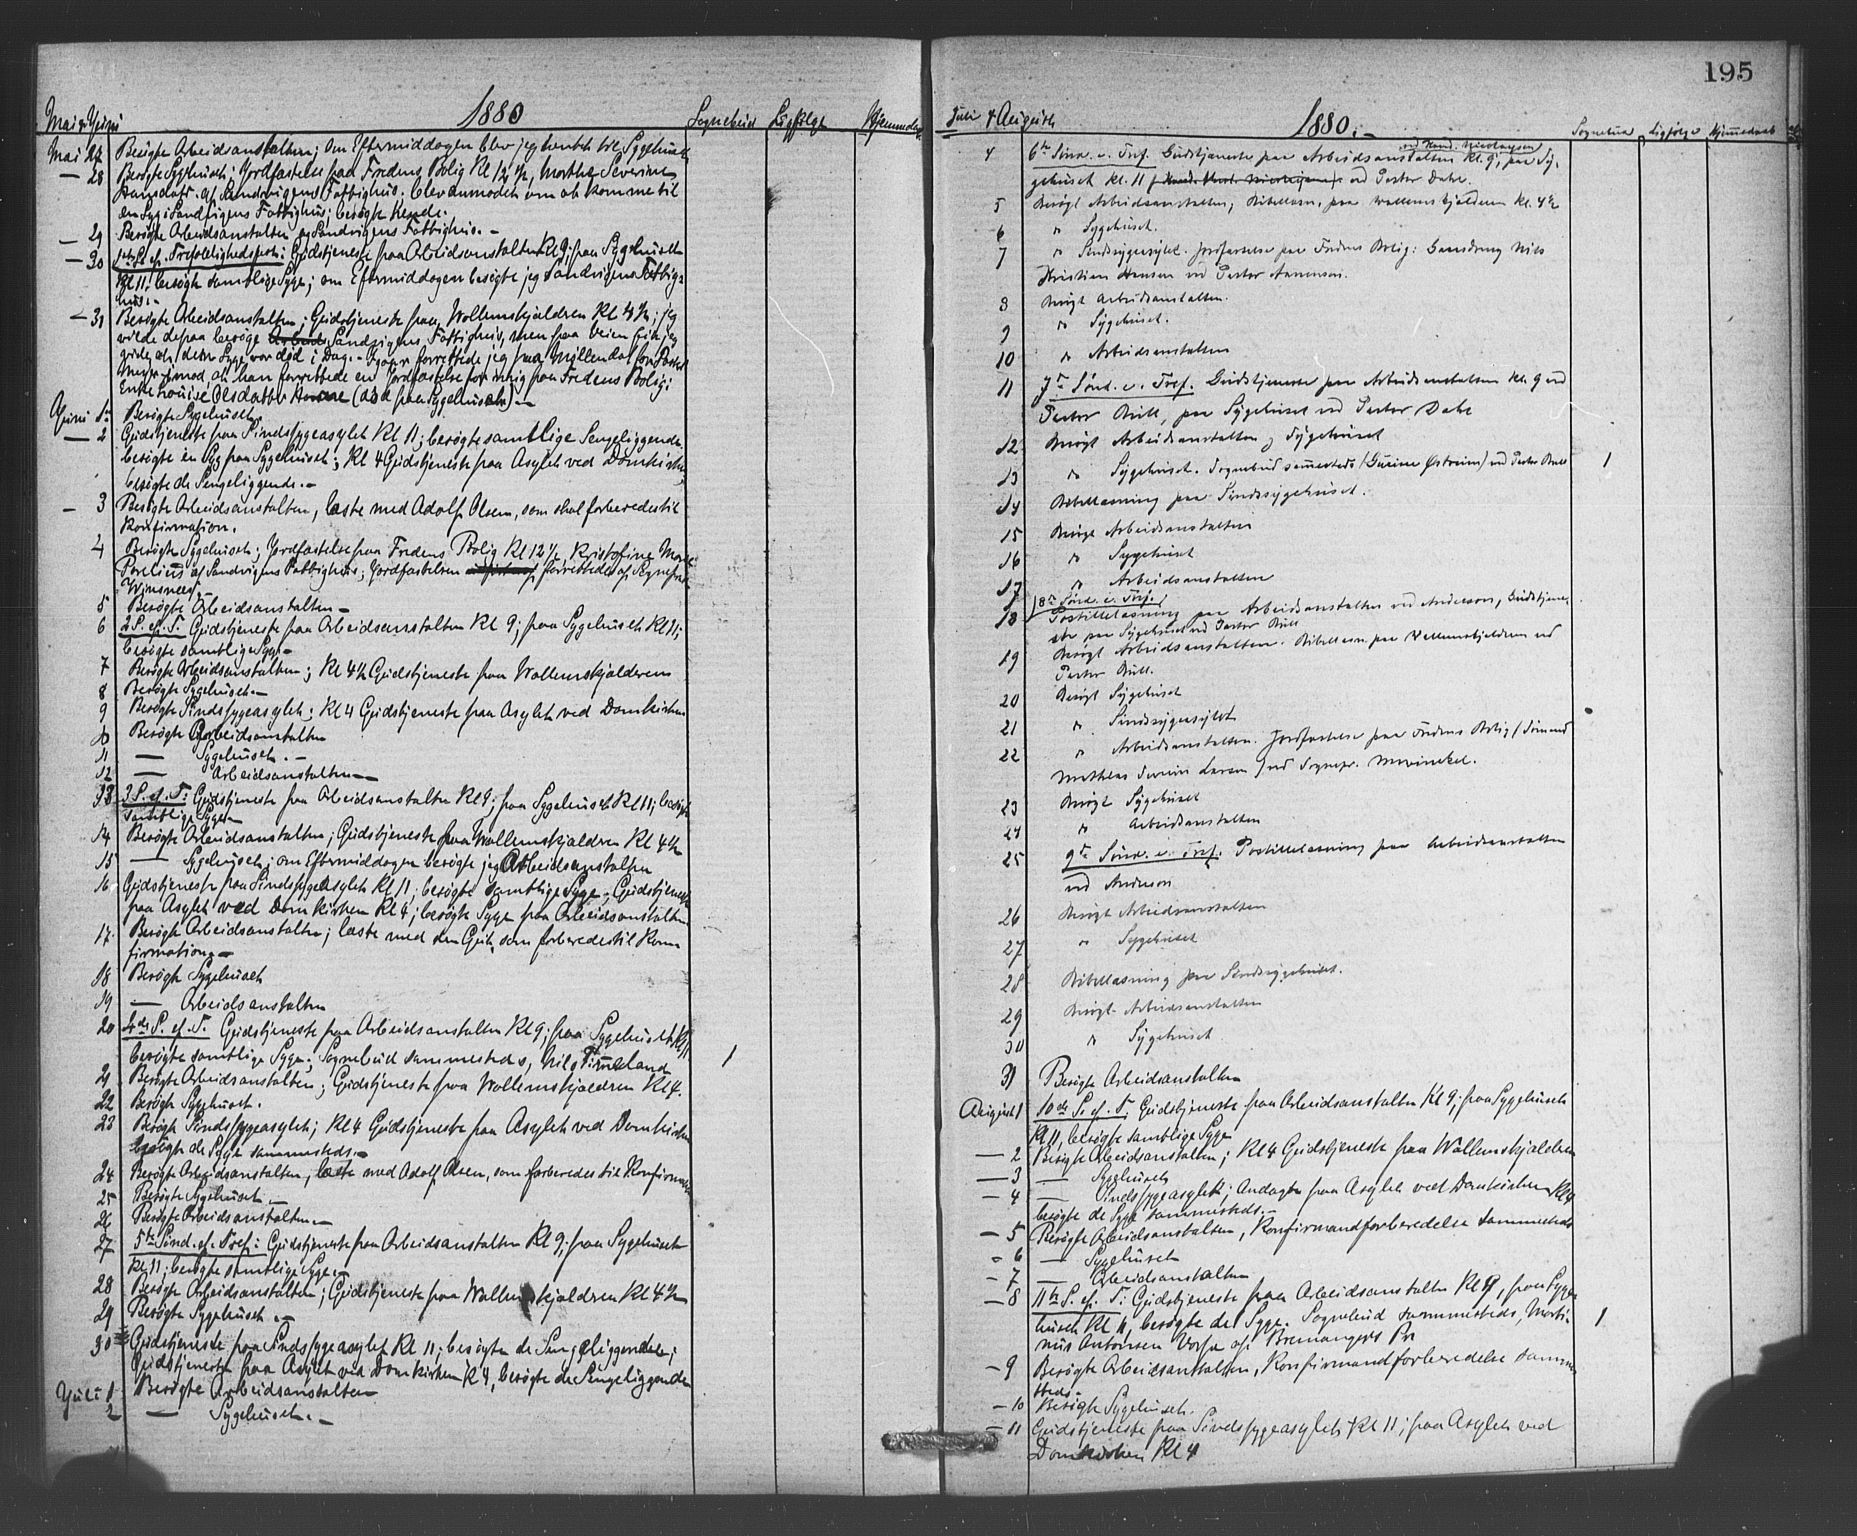 195
Mai & Juni 1880 Sognebud Ligfølge Hjemmedaab
Mai 27 Besøgte Arbeidsanstalten; om Eftermiddagen blev jeg hentet til Sygehuset
— 28 Besøgte Sygehuset; Jordfæstelse paa Fredens Bolig Kl 12½, Marthe Severine
Hansdatr. af Sandvigens Fattighus. Blev anmodet om at komme til
en Syg i Sandvigens Fattighus; besøgte hende.
— 29 Besøgte Arbeidsanstalten og Sandvigens Fattighus. —
— 30 S. ef. Trefoldighedsfest: Gudstjeneste paa Arbeidsanstalten Kl 9; paa Sygehuset
Kl 11; besøgte samtlige Syge; om Eftermiddagen besøgte jeg Sandvigens Fattig-
hus. —
— 31 Besøgte Arbeidsanstalten; Gudstjeneste paa Wollemskjældren Kl 4½; jeg
vilde derpaa besøge Sandvigens Fattighus, men paa Veien fik jeg
vide, at den Syge var død i Dag. — Igaar forrettede jeg paa Møllendal for Pastor
Meyer imod, at han forrettede en Jordfæstelse for mig paa Fredens Bolig:
Enke Louise Olsdatter (død paa Sygehuset). —
Juni 1 Besøgte Sygehuset.
— 2 Gudstjeneste paa Sindssygeasylet Kl 11; besøgte samtlige Sengeliggende
besøgte en Syg paa Sygehuset; Kl 4 Gudstjeneste paa Asylet ved Domkirken,
besøgte de Sengeliggende. —
— 3 Besøgte Arbeidsanstalten, læste med Adolf Olsen, som skal forberedes til
Konfirmation.
4 Besøgte Sygehuset; Jordfæstelse paa Fredens Bolig Kl 12½, Kristofine Marie
af Sandvigens Fattighus; Jordfæstelsen forrettedes af Sognepræst
5 Besøgte Arbeidsanstalten —
6 2 S. ef. T. Gudstjeneste paa Arbeidsanstalten Kl 9; paa Sygehuset Kl 11;
besøgte samtlige Syge —
7 Besøgte Arbeidsanstalten; Kl 4½ Gudstjeneste paa Wollemskjælderen
8 Besøgte Sygehuset. —
9 Besøgte Sindssygeasylet; Kl 4 Gudstjeneste paa Asylet ved Domkirken
10 Besøgte Arbeidsanstalten
11 — Sygehuset. —
12 — Arbeidsanstalten —
13 3 S. ef. T: Gudstjeneste paa Arbeidsanstalten Kl 9; paa Sygehuset Kl 11; besøgte
samtlige Syge —
14 Besøgte Arbeidsanstalten; Gudstjeneste paa Wollemskjældren Kl 4½
15 — Sygehuset; om Eftermiddagen besøgte jeg Arbeidsanstalten
16 Gudstjeneste paa Sindssygeasylet Kl 11; besøgte samtlige Syge; Gudstjeneste
paa Asylet ved Domkirken Kl 4; besøgte Syge paa Arbeidsanstalten
17. Besøgte Arbeidsanstalten; læste med den Gut, som forberedes til Kon-
firmation. —
18 Besøgte Sygehuset
19 — Arbeidsanstalten
20 4de S. ef. T. Gudstjeneste paa Arbeidsanstalten Kl 9; paa Sygehuset Kl 11
besøgte samtlige Syge; Sognebud sammesteds, Nils 1
21 Besøgte Arbeidsanstalten; Gudstjeneste paa Wollemskjældren Kl 4.
22 Besøgte Sygehuset.
23 Besøgte Sindssygeasylet; Kl 4 Gudstjeneste paa Asylet ved Domkirken
besøgte de Syge sammesteds. —
24 Besøgte Arbeidsanstalten, læste med Adolf Olsen, som forberedes til Konfirmation
25 Besøgte Sygehuset. —
26 Besøgte Arbeidsanstalten. —
27 5te Sønd. ef. Tref: Gudstjeneste paa Arbeidsanstalten Kl 9; paa Sygehuset
Kl 11; besøgte samtlige Syge. —
28 Besøgte Arbeidsanstalten; Gudstjeneste paa Wollemskjældren Kl 4½
29 Besøgte Sygehuset. —
30 Gudstjeneste paa Sindssygeasylet Kl 11; besøgte de Sengeliggende;
Gudstjeneste paa Asylet ved Domkirken Kl 4, besøgte de Sengeliggende
Juli 1 Besøgte Arbeidsanstalten
2 — Sygehuset. —
Juli & August 1880. — Sognebud Ligfølge Hjemmedaab
ved Kand. Nicolaysen
4 6te Sønd. e. Tref. Gudstjeneste paa Arbeidsanstalten Kl. 9; paa Sy-
gehuset Kl. 11 ved Pastor Dahl.
5 Besøgt Arbeidsanstalten; Bibellæsn. paa Wallemskjelderen Kl. 4½
6 " Sygehuset.
7 " Sindssygeasylet. Jordfæstelse paa Fredens Bolig: Nils
Kristian Hansen ved Pastor
8 Besøgt Arbeidsanstalten.
9 " Sygehuset.
10 " Arbeidsanstalten
11 7de Sønd. e. Tref. Gudstjeneste paa Arbeidsanstalten Kl. 9 ved
Pastor Bull, paa Sygehuset ved Pastor Dahl
12 Besøgt Arbeidsanstalten og Sygehuset
13 " Sygehuset. Sognebud sammesteds (Gurine Østreim) ved Pastor Bull 1
14 Bibellæsning paa Sindssygehuset.
15 Besøgt Arbeidsanstalten
16 " Sygehuset
17 " Arbeidsanstalten
18 8de Sønd. e. Tref.
Postillelæsning paa Arbeidsanstalten ved Anderson, Gudstjene-
ste paa Sygehuset ved Pastor Bull
19 Besøgt Arbeidsanstalten. Bibellæsn. paa Wallemskjelderen ved
Pastor Bull.
20 Besøgt Sygehuset
21 " Sindssygeasylet
22 " Arbeidsanstalten. Jordfæstelse paa Fredens Bolig (Sømand
Mathias Larsen) ved Sognepr. Mowinckel.
23 Besøgt Sygehuset
24 " Arbeidsanstalten
25 9de Sønd. e. Tref. Postillelæsning paa Arbeidsanstalten
ved Anderson
26 Besøgt Arbeidsanstalten
27 " Sygehuset
28 Bibellæsning paa Sindssygehuset.
29 Besøgt Arbeidsanstalten
30 " Sygehuset
31 Besøgte Arbeidsanstalten
August 1 10de S. ef. T. Gudstjeneste paa Arbeidsanstalten Kl 9; paa Sygehuset
Kl 11, besøgte samtlige Syge
— 2 Besøgte Arbeidsanstalten; Kl 4 Gudstjeneste paa Wallemskjælderen
— 3 — Sygehuset
— 4 — Sindssygeasylet; Andagt paa Asylet ved Domkirken Kl 4
besøgte de Syge sammesteds. —
— 5 Besøgte Arbeidsanstalten, Konfirmandforberedelse sammesteds
— 6 — Sygehuset
— 7 — Arbeidsanstalten
— 8 11te S. ef. T: Gudstjeneste paa Arbeidsanstalten Kl 9, paa Syge-
huset Kl 11, besøgte de Syge. Sognebud sammesteds, Marti- 1
nus Antonsen af Bremangers Pr
— 9 Besøgte Arbeidsanstalten, Konfirmandforberedelse samme-
steds —
— 10 Besøgte Sygehuset.
— 11 Gudstjeneste paa Sindssygeasylet Kl 11; paa Asylet ved
Domkirken Kl 4